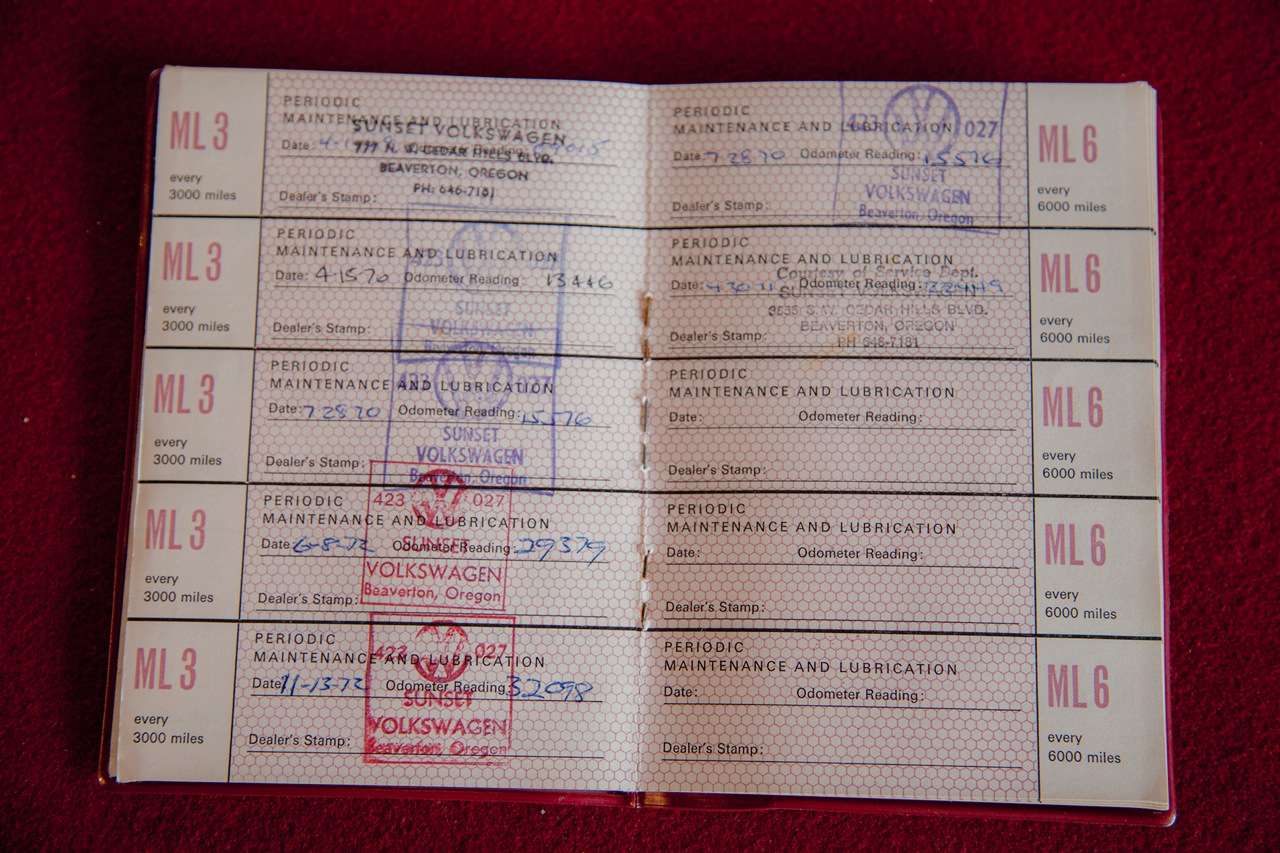 ML 3
every
3000 miles
PERIODIC
MAINTENANCE AND LUBRICATION
SUNSET VOLKSWAGEN
Date: Odometer Reading:
777 N. W. CEDAR HILLS BLVD.
BEAVERTON, OREGON
PH: 646-7181
Dealer's Stamp:
ML 3
every
3000 miles
PERIODIC
MAINTENANCE AND LUBRICATION
Date: 4 15 70 Odometer Reading: 13446
423
SUNSET
VOLKSWAGEN
Beaverton, Oregon
Dealer's Stamp:
ML 3
every
3000 miles
PERIODIC
MAINTENANCE AND LUBRICATION
423
Date: 7 28 70 Odometer Reading: 15576
SUNSET
VOLKSWAGEN
Beaverton, Oregon
Dealer's Stamp:
ML 3
every
3000 miles
PERIODIC
423 027
MAINTENANCE AND LUBRICATION
Date: 6-8-72 Odometer Reading: 29379
SUNSET
VOLKSWAGEN
Beaverton, Oregon
Dealer's Stamp:
ML 3
every
3000 miles
PERIODIC
423 027
MAINTENANCE AND LUBRICATION
Date: 11-13-72 Odometer Reading: 32098
SUNSET
VOLKSWAGEN
Beaverton, Oregon
Dealer's Stamp:
PERIODIC
MAINTENANCE AND LUBRICATION
423 027
Date: 7 28 70 Odometer Reading: 15576
SUNSET
VOLKSWAGEN
Beaverton, Oregon
Dealer's Stamp:
ML 6
every
6000 miles
PERIODIC
MAINTENANCE AND LUBRICATION
Courtesy of Service Dept.
Date: 4 30 71 Odometer Reading:
SUNSET VOLKSWAGEN
3655 S.W. CEDAR HILLS BLVD.
BEAVERTON, OREGON
PH 646-7181
Dealer's Stamp:
ML 6
every
6000 miles
PERIODIC
MAINTENANCE AND LUBRICATION
Date: Odometer Reading:
Dealer's Stamp:
ML 6
every
6000 miles
PERIODIC
MAINTENANCE AND LUBRICATION
Date: Odometer Reading:
Dealer's Stamp:
ML 6
every
6000 miles
PERIODIC
MAINTENANCE AND LUBRICATION
Date: Odometer Reading:
Dealer's Stamp:
ML 6
every
6000 miles